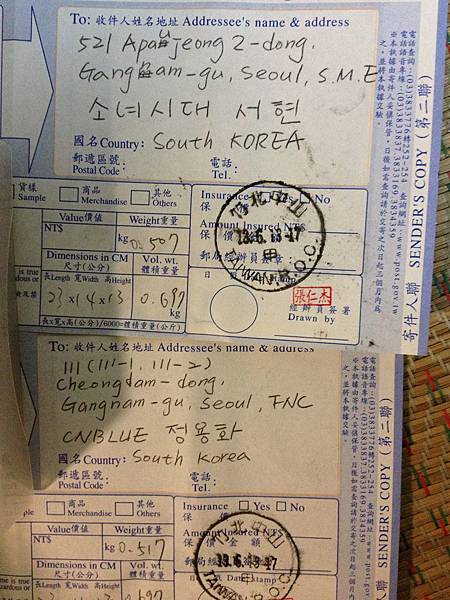 To: 收件人姓名地址 Addressee's name & address
521 Apgujeong 2-dong.
Gangnam-gu, Seoul, S.M.E
소녀시대 서현
國名Country: South KOREA
郵遞區號: 電話:
Postal Code: Tel.:
貨樣 商品 其他
Sample Merchandise Others
Insurance Yes No
保
Value價值 Weight重量
NT$ kg 0.507
Amount Insured NT$
保 價 金 額
郵局經辦員簽章
台北中山
13.6.13.-17
甲
TAIWAN R.O.C.
Dimensions in CM Vol. wt.
尺寸(公分) 體積重量
長Length 寬Width 高Height kg
23x14x13 0.697
長x寬x高(公分)/6000=體積重量(公斤)
張仁杰
經辦員簽署
Drawn by
寄件人聯 SENDER'S COPY (第二聯)
To: 收件人姓名地址 Addressee's name & address
111 (111-1, 111-2)
Cheongdam-dong.
Gangnam-gu, Seoul, FNC
CNBLUE 정용화
國名Country: South Korea
郵遞區號: 電話:
Postal Code: Tel.:
商品 其他
Merchandise Others
Insurance Yes No
保
Value價值 Weight重量
NT$ kg 0.517
Amount Insured NT$
保 價 金 額
台北中山
13.6.13.-17
TAIWAN R.O.C.
Dimensions in CM Vol. wt.
尺寸(公分) 體積重量
長Length 寬Width 高Height kg
寄件人聯 SENDER'S COPY (第二聯)